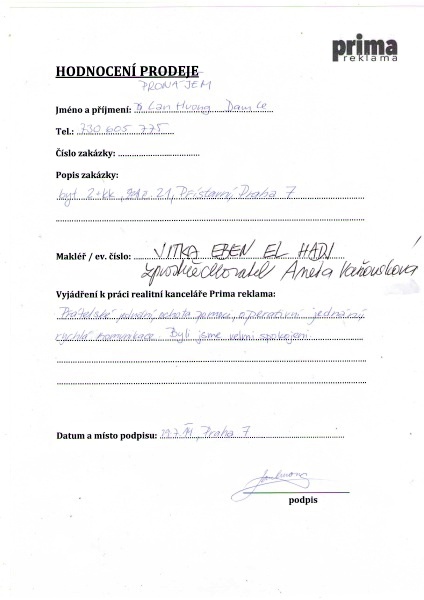 prima
reklama
HODNOCENÍ PRODEJE
PRONÁJEM
Jméno a příjmení: Lan Huong Dam Le
Tel.: 730 605 775
Číslo zakázky:
Popis zakázky:
byt 2+kk, Přístavní, Praha 7
Makléř / ev. číslo: JITKA EBEN EL HADJ
zprostředkovatel Aneta Vaňousková
Vyjádření k práci realitní kanceláře Prima reklama:
Přátelské, ochota pomoci, operativní jednání,
rychlá komunikace. Byli jsme velmi spokojeni.
Datum a místo podpisu: Praha 7
podpis